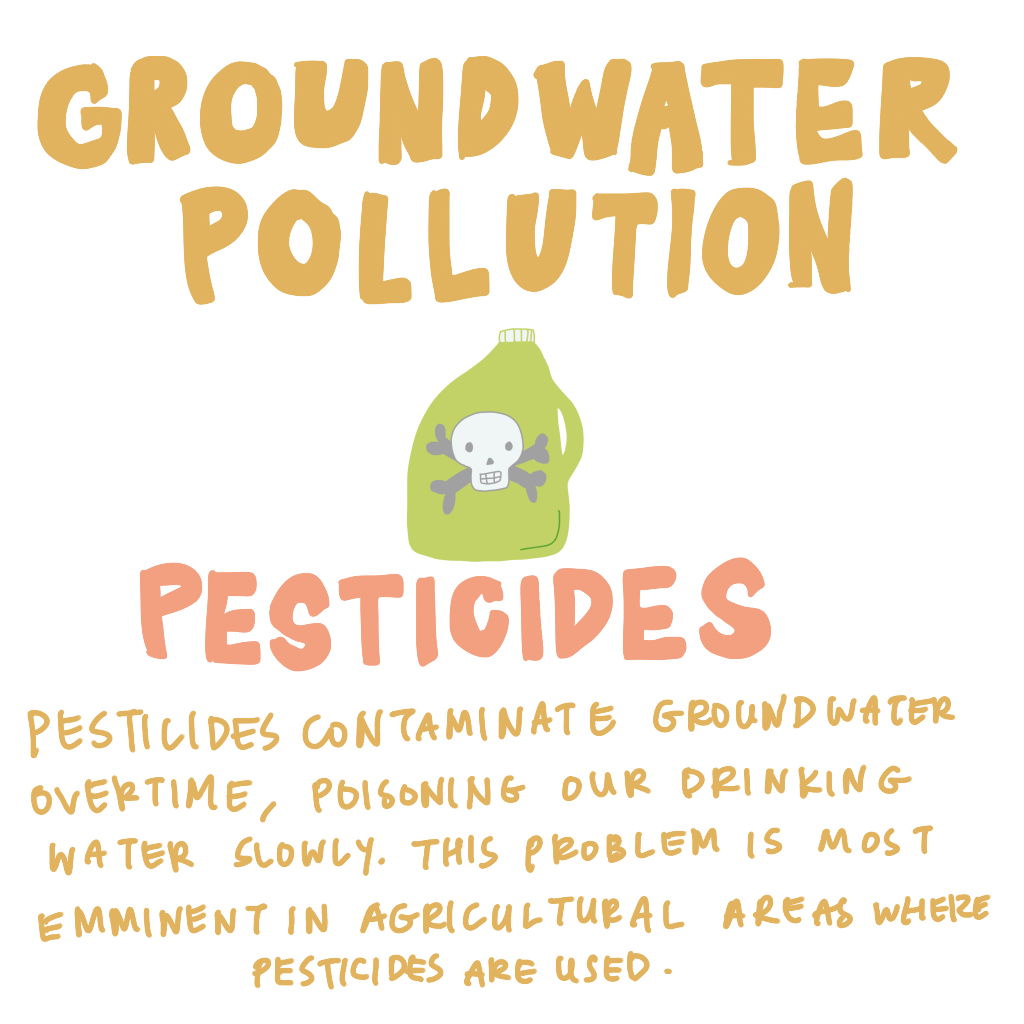 GROUNDWATER
POLLUTION
PESTICIDES
PESTICIDES CONTAMINATE GROUNDWATER
OVERTIME, POISONING OUR DRINKING
WATER SLOWLY. THIS PROBLEM IS MOST
EMMINENT IN AGRICULTURAL AREAS WHERE
PESTICIDES ARE USED.